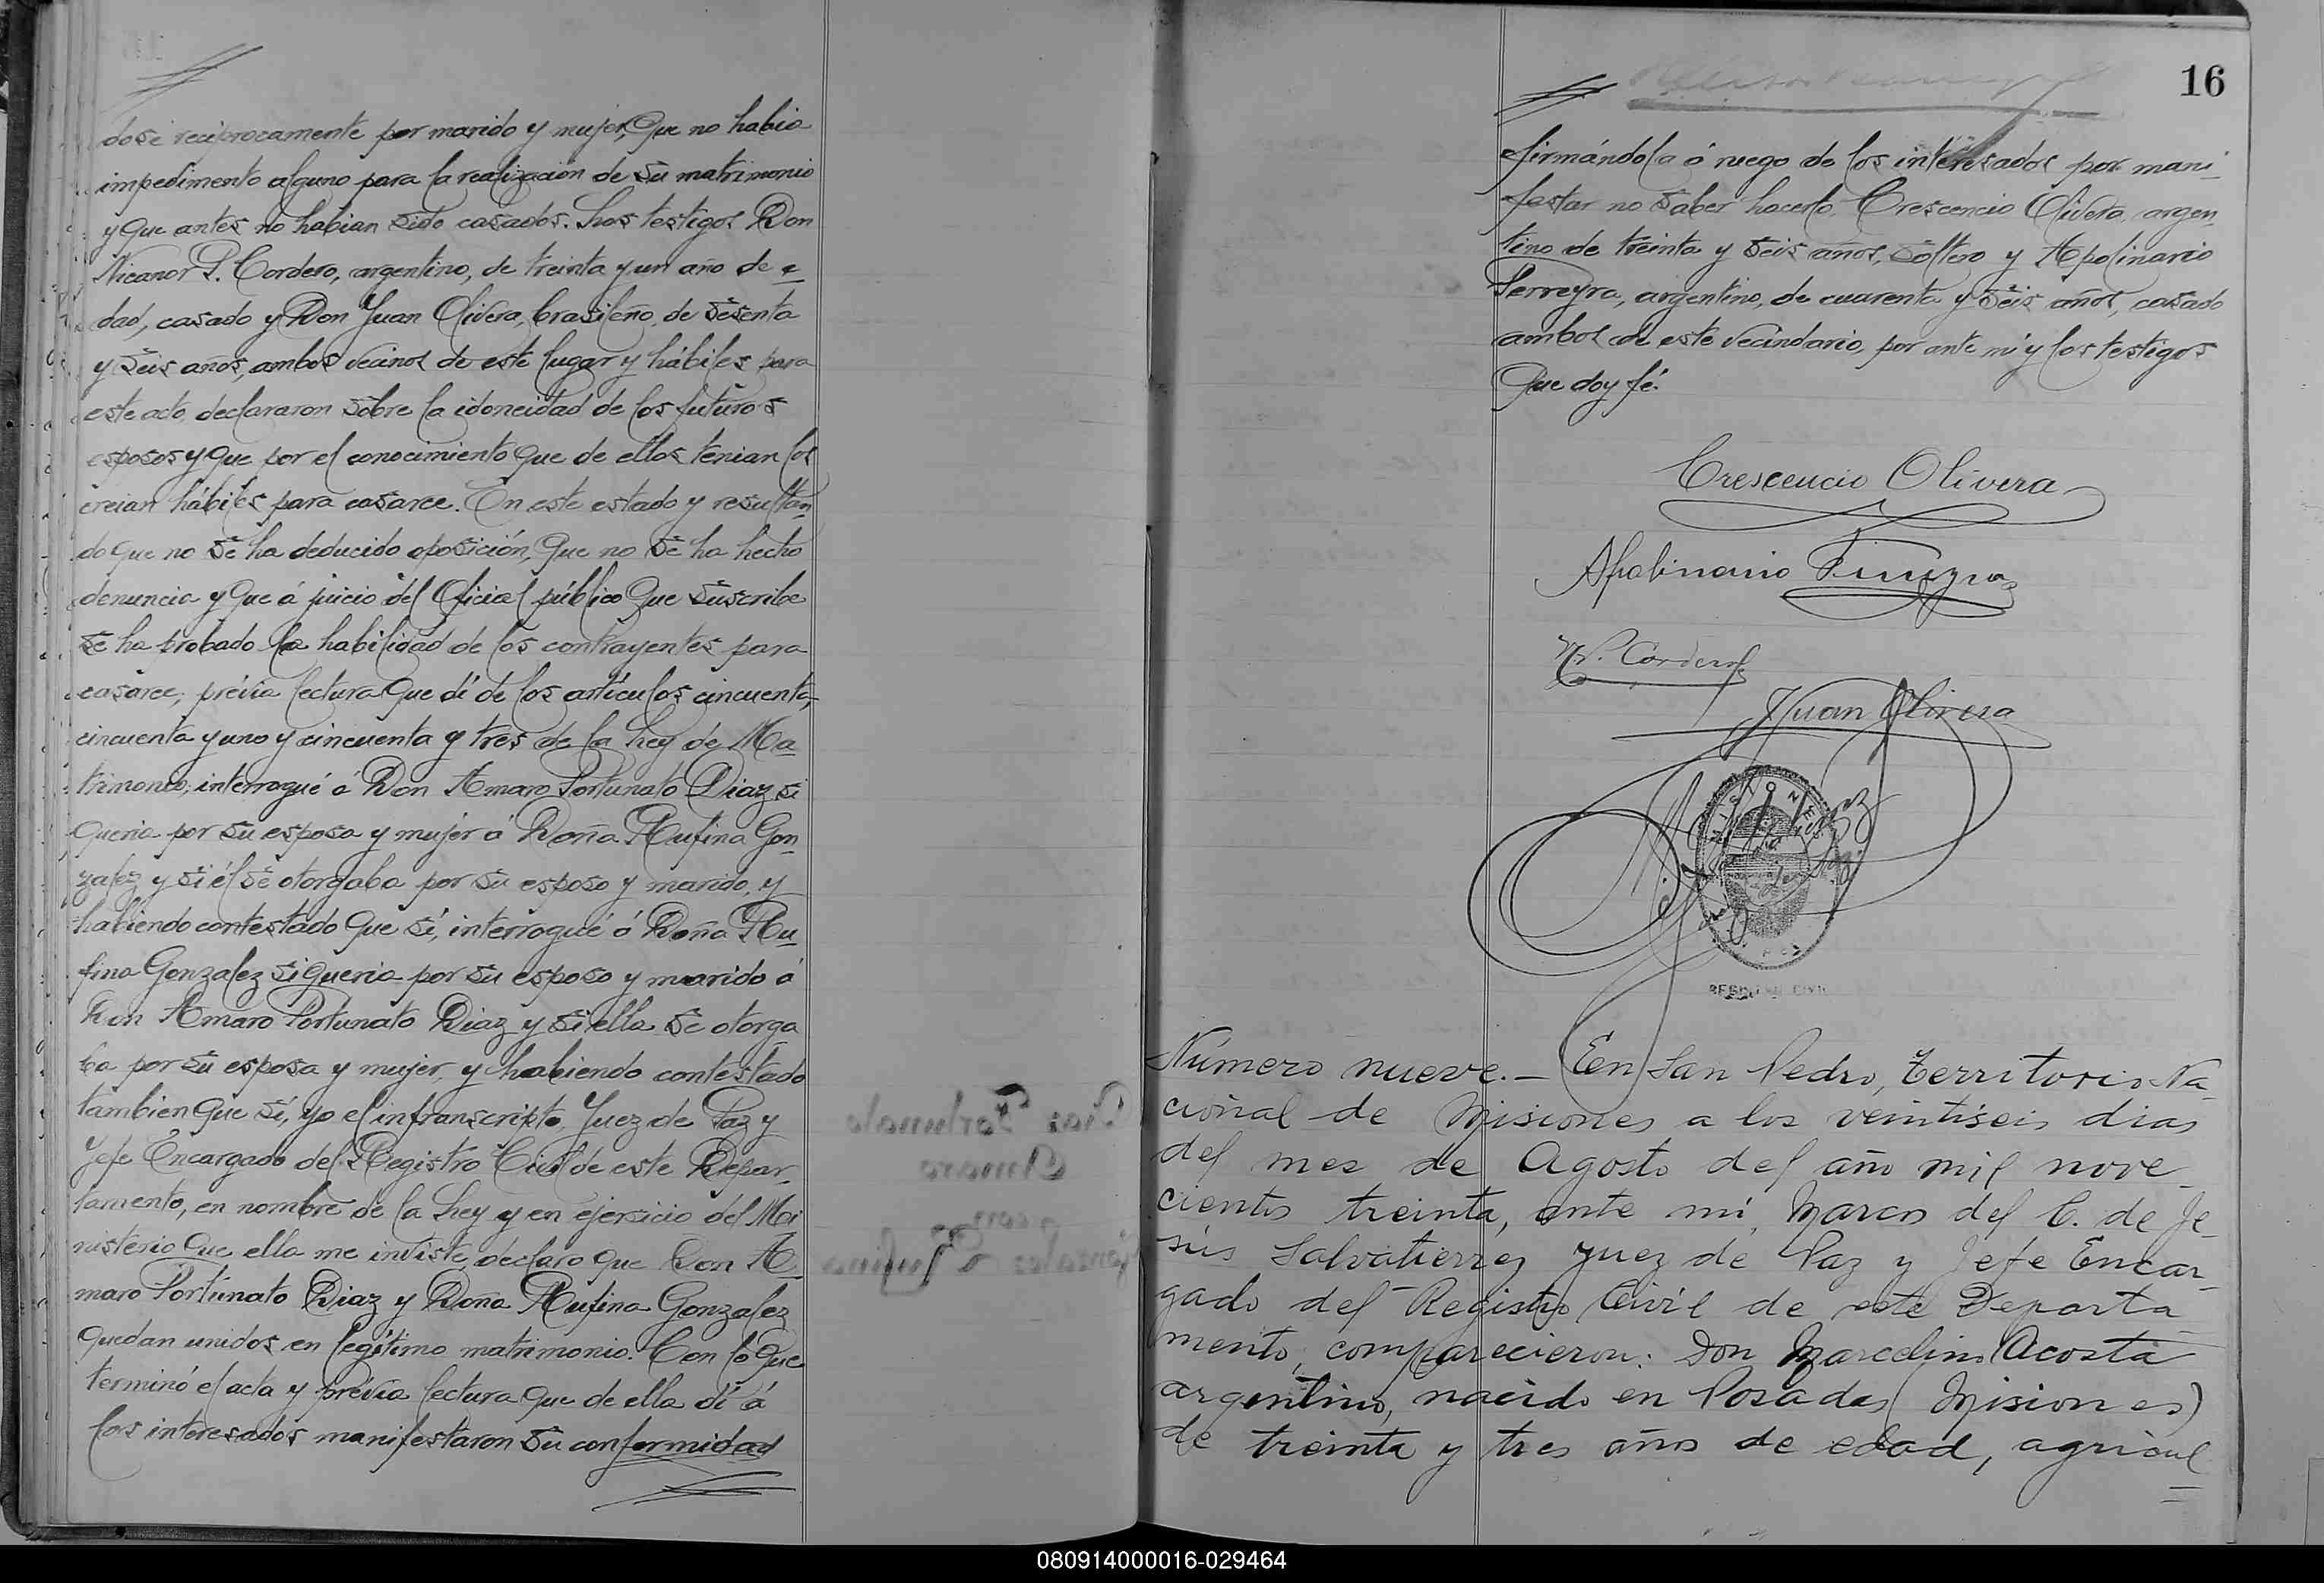 dose reciprocamente por marido y mujer, Que no habia
impedimento alguno para la realización de su matrimonio
y Que antes no habian sido casados. Los testigos Don
Nicanor P. Cordero, argentino, de treinta y un año de e
dad, casado y Don Juan Olivera, brasileño, de sesenta
y seis años, ambos vecinos de este lugar y hábiles para
este acto, declararon sobre la idoneidad de los futuros
esposos y Que por el conocimiento Que de ellos tenian los
creian hábiles para casarce. En este estado y resultan
do Que no se ha deducido oposición, Que no se ha hecho
denuncia y Que á juicio del Oficial público Que suscribe
se ha probado la habilidad de los contrayentes para
casarce; prévia lectura Que dí de los artículos cincuenta,
cincuenta y uno y cincuenta y tres de la Ley de Ma
trimonio, interrogué á Don Amaro Fortunato Diaz si
Queria por su esposa y mujer á Doña Rufina Gon
zalez y si él se otorgaba por su esposo y marido, y
habiendo contestado Que sí, interrogué á Doña Ru
fina Gonzalez si Queria por su esposo y marido á
Don Amaro Fortunato Diaz y si ella se otorga
ba por su esposa y mujer, y habiendo contestado
tambien Que sí, yo el infranscripto, Juez de Paz y
Jefe Encargado del Registro Civil de este Depar-
tamento, en nombre de la Ley y en ejersicio del Mi
nisterio Que ella me inviste, declaro Que Don A
maro Fortunato Diaz y Doña Rufina Gonzalez
Quedan unidos en legítimo matrimonio. Con lo Que
terminó el acta y prévia lectura Que de ella dí á
los interesados manifestaron su conformidad
16
firmándola á ruego de los interesados por mani-
festar no saber hacerlo, Crescencio Olivera, argen
tino de treinta y seis años, soltero y Apolinario
Ferreyra, argentino, de cuarenta y seis años, casado
ambos de este vecindario, por ante mí y los testigos
Que doy fé.
Crescencio Olivera
Apolinario Ferreyra
N. P. Cordero
Juan Olivera
MISIONES
REGISTRO CIVIL
Número nueve. — En San Pedro, Territorio Na-
cional de Misiones a los veintiseis dias
del mes de Agosto del año mil nove-
cientos treinta, ante mí, Marcos del C. de Je-
sús Salvatierra, Juez de Paz y Jefe Encar-
gado del Registro Civil de este Departa-
mento, comparecieron: Don Marcelino Acosta
argentino, nacido en Posadas (Misiones)
de treinta y tres años de edad, agricul
080914000016-029464